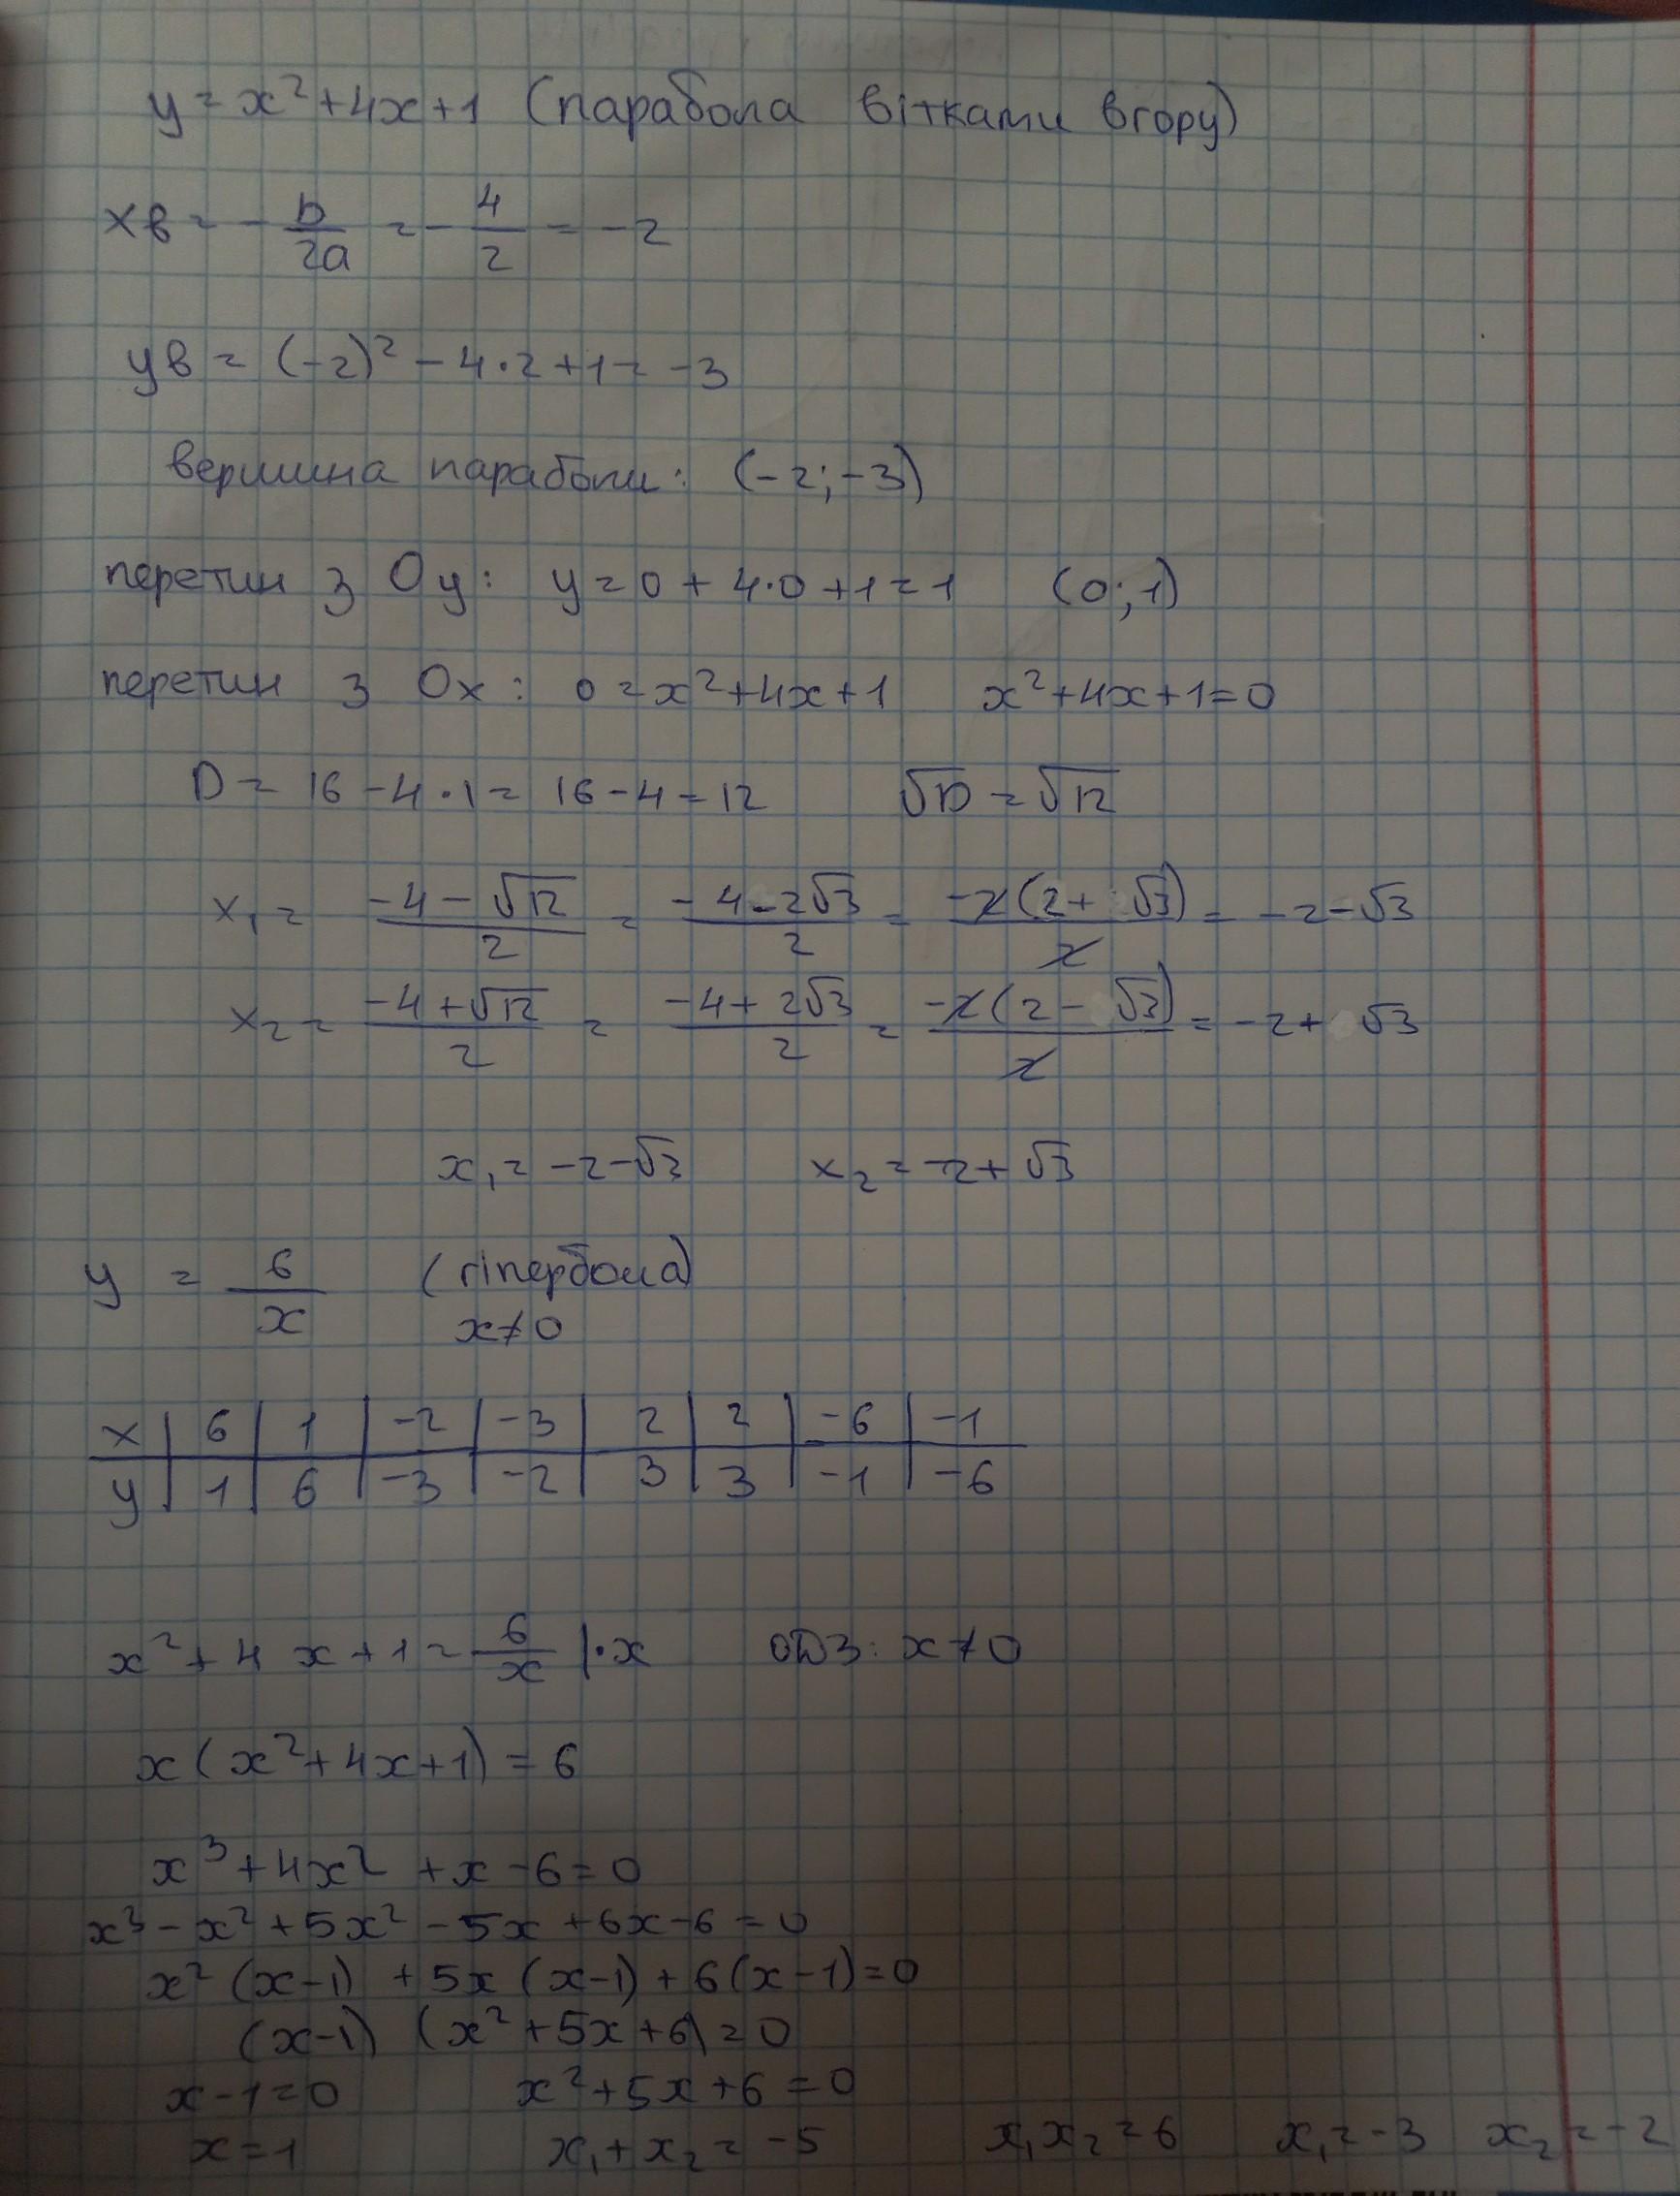 y = x² + 4x + 1 (парабола вітками вгору)
xв = - b/2a = - 4/2 = -2
yв = (-2)² - 4·2 + 1 = -3
вершина параболи: (-2; -3)
перетин з Oy: y = 0 + 4·0 + 1 = 1 (0; 1)
перетин з Ox: 0 = x² + 4x + 1 x² + 4x + 1 = 0
D = 16 - 4·1 = 16 - 4 = 12 √D = √12
x₁ = (-4 - √12)/2 = (-4 - 2√3)/2 = -2(2 + √3)/2 = -2 - √3
x₂ = (-4 + √12)/2 = (-4 + 2√3)/2 = -2(2 - √3)/2 = -2 + √3
x₁ = -2 - √3 x₂ = -2 + √3
y = 6/x (гіпербола)
x ≠ 0
x | 6 | 1 | -2 | -3 | 2 | 2 | -6 | -1
y | 1 | 6 | -3 | -2 | 3 | 3 | -1 | -6
x² + 4x + 1 = 6/x |·x ОДЗ: x ≠ 0
x(x² + 4x + 1) = 6
x³ + 4x² + x - 6 = 0
x³ - x² + 5x² - 5x + 6x - 6 = 0
x²(x-1) + 5x(x-1) + 6(x-1) = 0
(x-1) (x² + 5x + 6) = 0
x - 1 = 0 x² + 5x + 6 = 0
x = 1 x₁ + x₂ = -5 x₁x₂ = 6 x₁ = -3 x₂ = -2